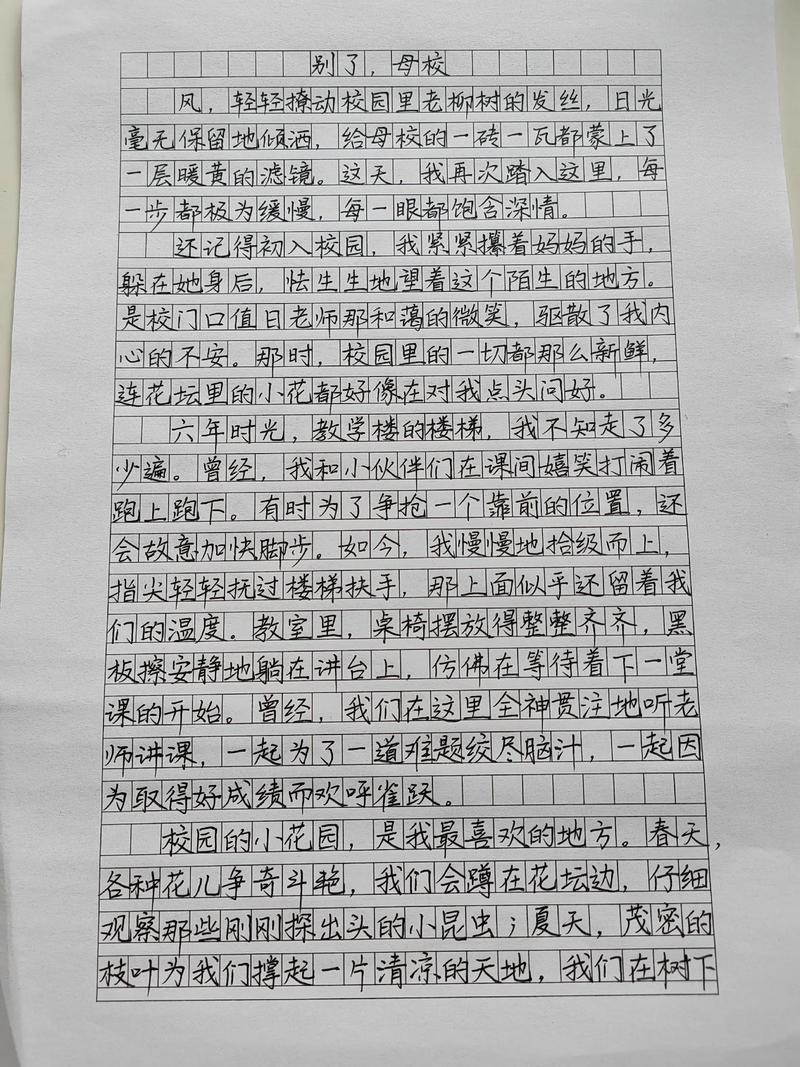 别了，母校
风，轻轻撩动校园里老柳树的发丝，日光
毫无保留地倾洒，给母校的一砖一瓦都蒙上了
一层暖黄的滤镜。这天，我再次踏入这里，每
一步都极为缓慢，每一眼都饱含深情。
还记得初入校园，我紧紧攥着妈妈的手，
躲在她身后，怯生生地望着这个陌生的地方。
是校门口值日老师那和蔼的微笑，驱散了我内
心的不安。那时，校园里的一切都那么新鲜，
连花坛里的小花都好像在对我点头问好。
六年时光，教学楼的楼梯，我不知走了多
少遍。曾经，我和小伙伴们在课间嬉笑打闹着
跑上跑下。有时为了争抢一个靠前的位置，还
会故意加快脚步。如今，我慢慢地拾级而上，
指尖轻轻抚过楼梯扶手，那上面似乎还留着我
们的温度。教室里，桌椅摆放得整整齐齐，黑
板擦安静地躺在讲台上，仿佛在等待着下一堂
课的开始。曾经，我们在这里全神贯注地听老
师讲课，一起为了一道难题绞尽脑汁，一起因
为取得好成绩而欢呼雀跃。
校园的小花园，是我最喜欢的地方。春天，
各种花儿争奇斗艳，我们会蹲在花坛边，仔细
观察那些刚刚探出头的小昆虫；夏天，茂密的
枝叶为我们撑起一片清凉的天地，我们在树下